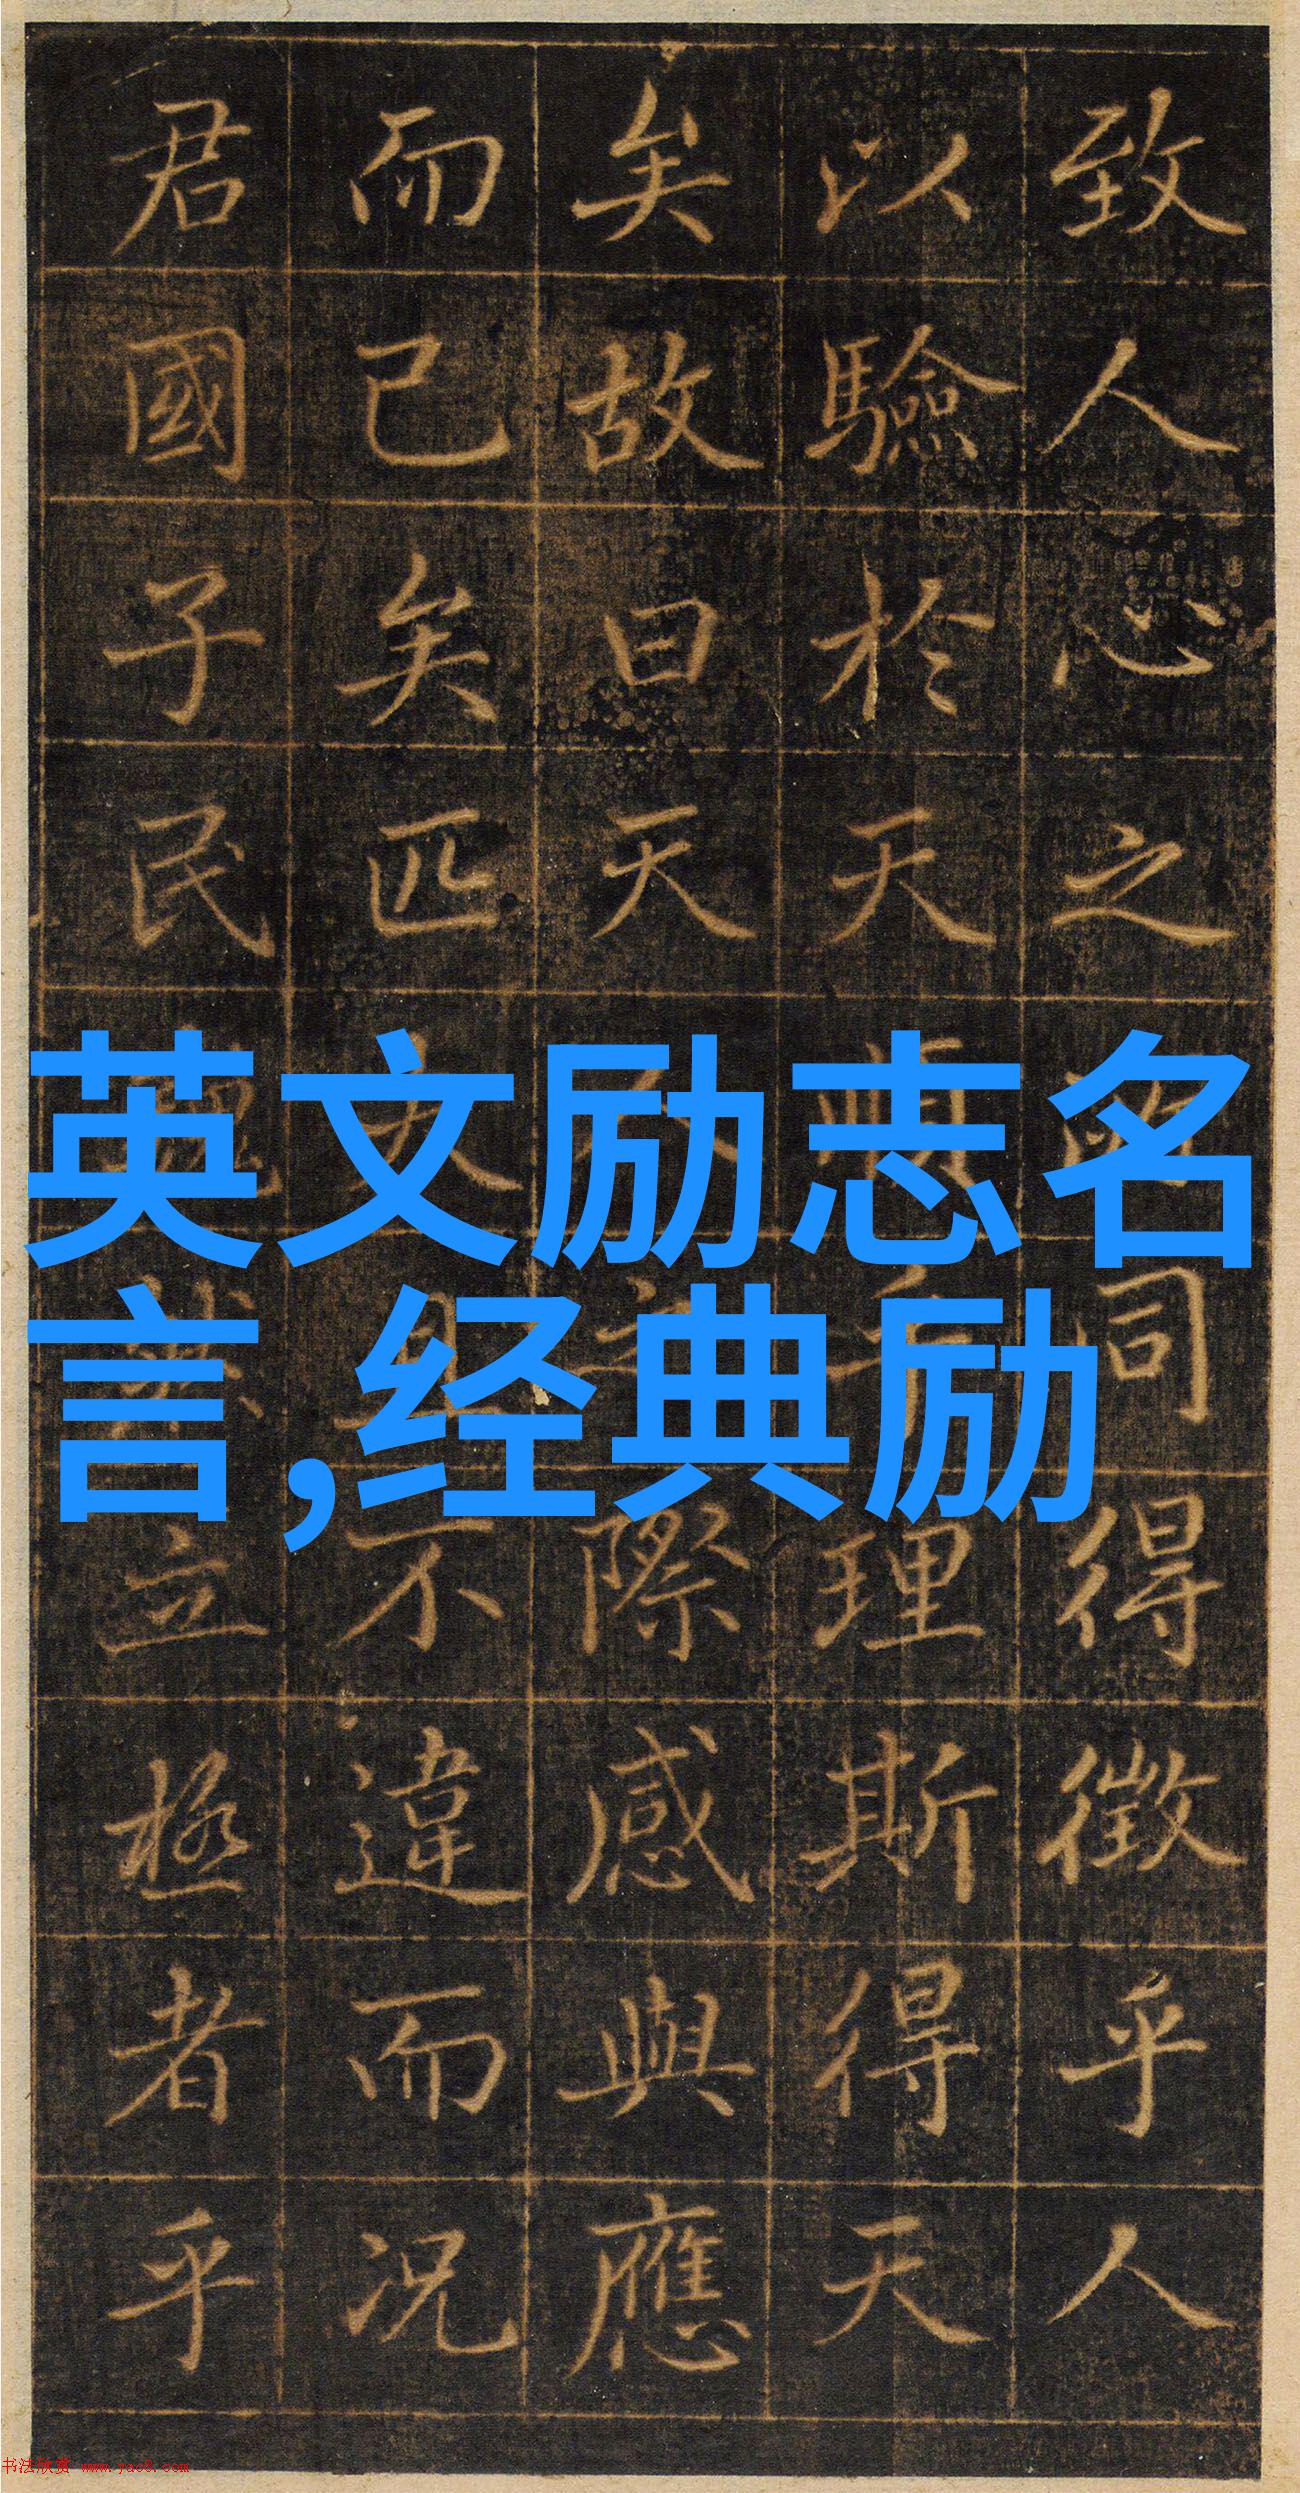 致人心之同得徵乎人
以驗於天順理斯得天
矣故曰天人之際感與應
而已矣匹夫且不違而況
君國子民立極者乎
英文励志名
言,经典励
书法欣赏 www.yac8.com